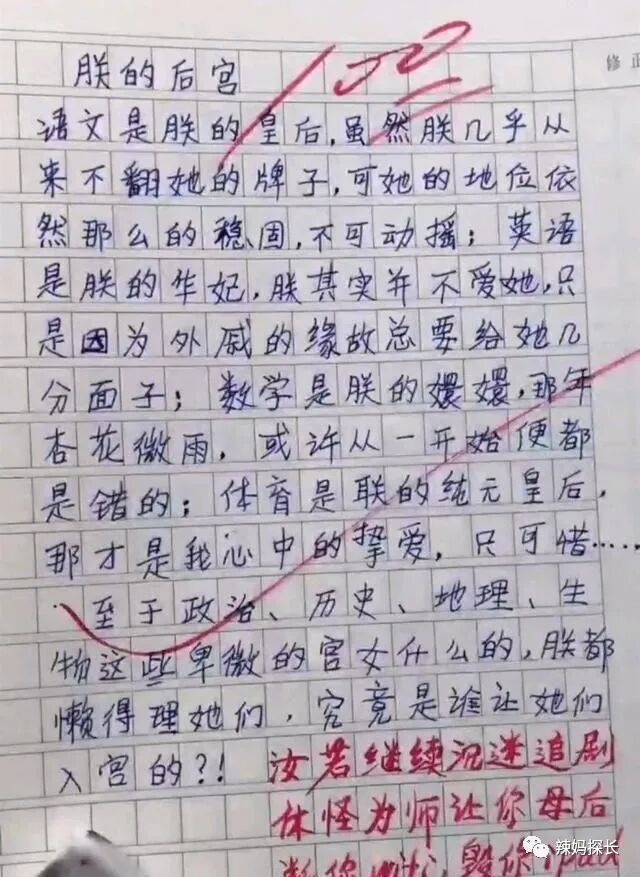 朕的后宫
语文是朕的皇后,虽然朕几乎从
来不翻她的牌子,可她的地位依
然那么的稳固,不可动摇;英语
是朕的华妃,朕其实并不爱她,只
是因为外戚的缘故总要给她几
分面子;数学是朕的嬛嬛,那年
杏花微雨,或许从一开始便都
是错的;体育是联的纯元皇后,
那才是我心中的挚爱,只可惜……
至于政治、历史、地理、生
物这些卑微的宫女什么的,朕都
懒得理她们,究竟是谁让她们
入宫的?!
汝若继续沉迷追剧
休怪为师让你母后
断你wifi,毁你ipad
修正
辣妈探长